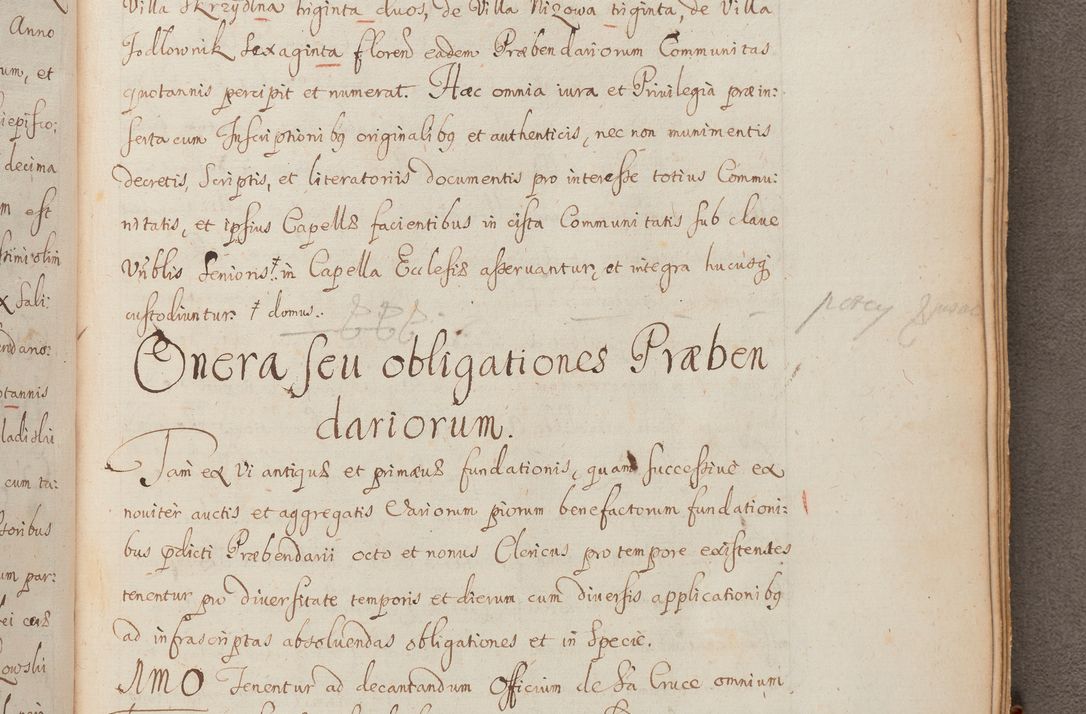 Anno
um, et
iepisco:
decima
m est
simi olim
x Sali:
endano:
otannis
ladislii
cum ta:
toribus
um par:
ei cuis
owslii
Villa Skrzydlna triginta duos, de Villa Wizowa triginta, de Villa
Jodłownik Sexaginta floren eadem Præbendariorum Communitas
quotannis percipit et numerat. Hæc omnia iura et Privilegia præin:
serta cum Inscriptionibq originalibq et authenticis, nec non munimentis
decretis, Scriptis, et literatoriis documentis pro interesse totius Commu:
nitatis, et ipsius Capellæ facientibus in cista Communitatis sub clave
Vnblis Senioris † in Capella Ecclesiæ asservantur, et integra hucusq
custodiuntur. † domus.
Onera seu obligationes Præben
dariorum.
Tam ex vi antiquæ et primævæ fundationis, quam successivè ex
noviter auctis et aggregatis Variorum piorum benefactorum fundationi:
bus pdicti Præbendarii octo et nonus Clericus pro tempore existentes
tenentur pro diversitate temporis et dierum cum diversis applicationibq
ad infrascriptas absolvendas obligationes et in Specie.
1mo Tenentur ad decantandum Officium de Sa Cruce omnium